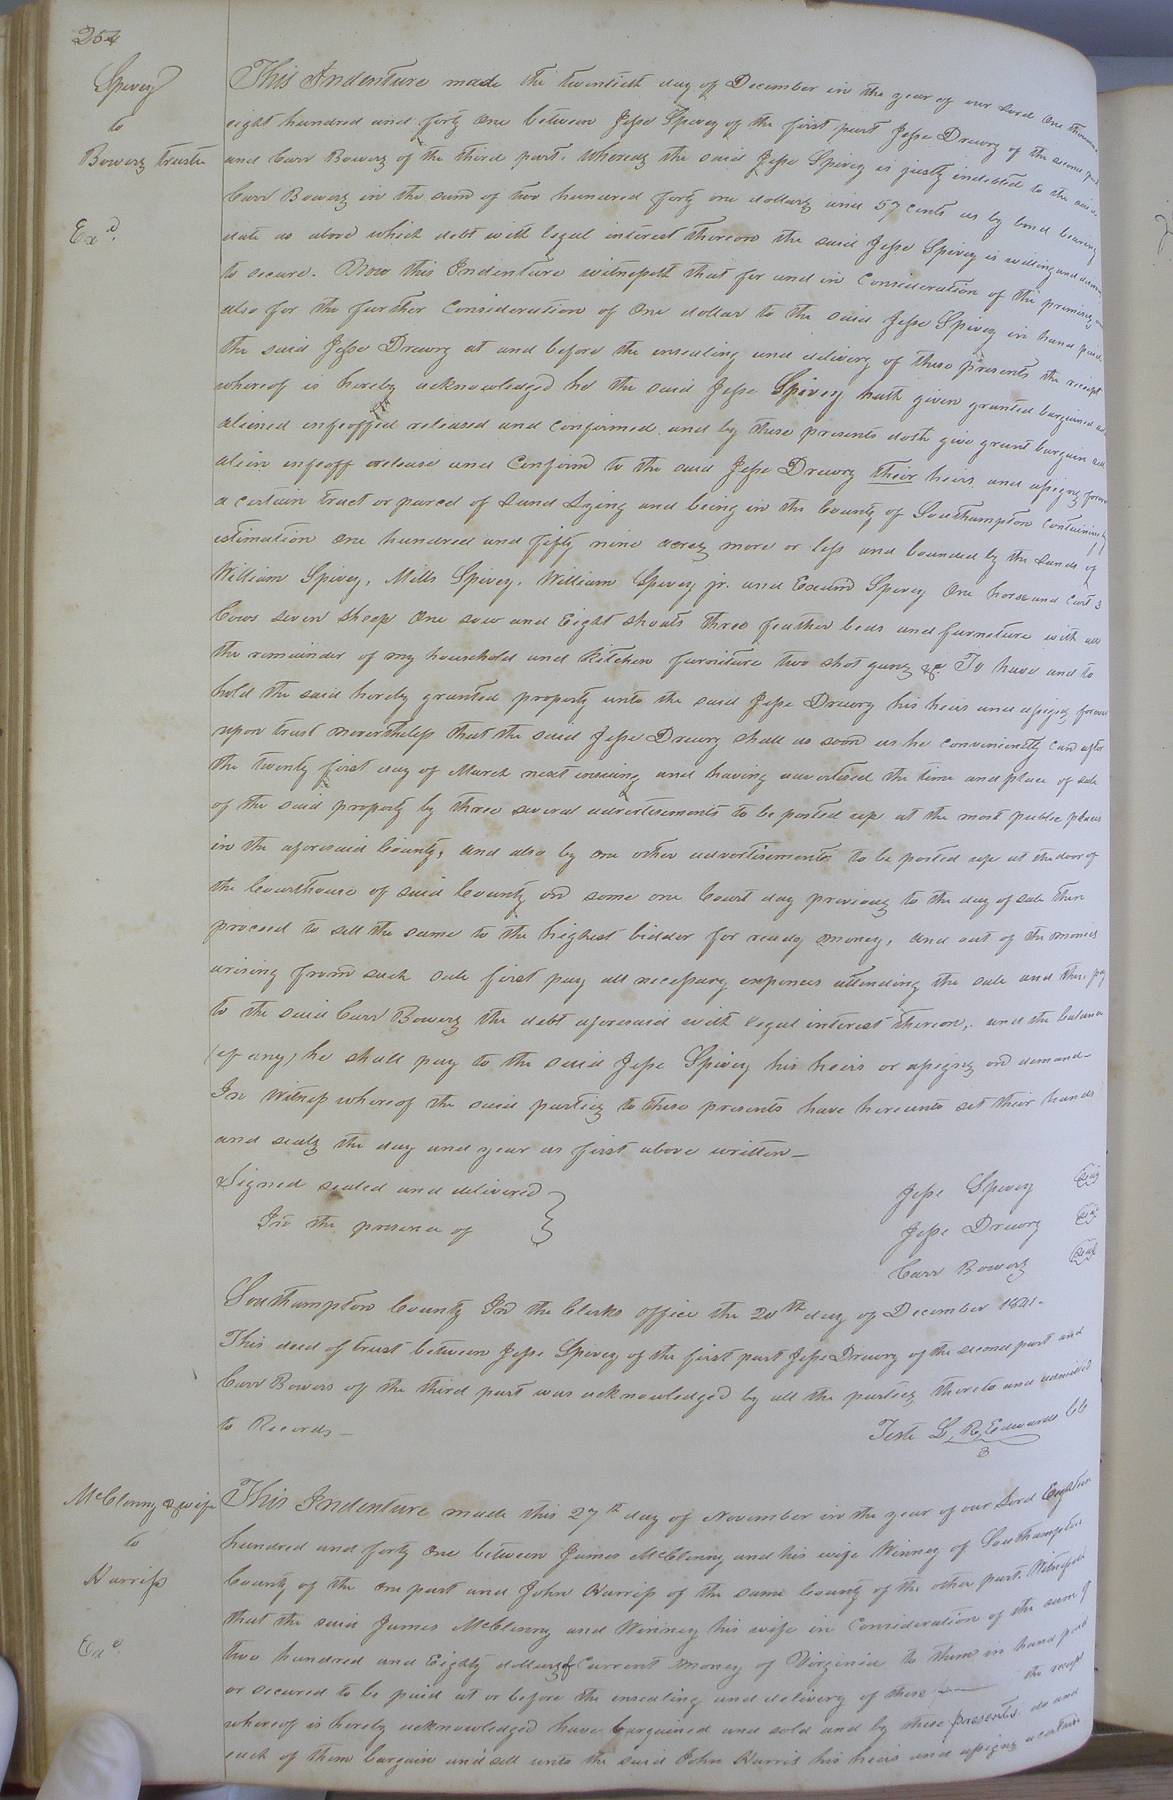 254
Spivey
to
Bowers trustee
Exd.
This Indenture made the twentieth day of December in the year of our Lord One thousand
eight hundred and forty one between Jesse Spivey of the first part Jesse Drewry of the second part
and Carr Bowers of the third part. Whereas the said Jesse Spivey is justly indebted to the said
Carr Bowers in the sum of two hundred forty one dollars and 57 cents as by bond bearing
date as above which debt with legal interest thereon the said Jesse Spivey is willing and desirous
to secure. Now this Indenture witnesseth that for and in Consideration of the premises and
also for the further Consideration of One dollar to the said Jesse Spivey in hand paid
the said Jesse Drewry at and before the ensealing and delivery of these presents the receipt
whereof is hereby acknowledged he the said Jesse Spivey hath given granted bargained
aliened enfeoffed released and confirmed and by these presents doth give grant bargain sell
alien enfeoff release and confirm to the said Jesse Drewry their heirs and assigns forever
a certain tract or parcel of Land Lying and being in the County of Southampton Containing by
estimation One hundred and fifty nine acres more or less and bounded by the Lands of
William Spivey, Mills Spivey, William Spivey jr. and Exum Spivey One horse and Cart 3
Cows seven sheep One sow and Eight shoats three feather beds and furneture with all
the remainder of my household and Kitchen furniture two shot guns &c To have and to
hold the said hereby granted property unto the said Jesse Drewry his heirs and assigns forever
upon trust nevertheless that the said Jesse Drewry shall as soon as he conveniently can after
the twenty first day of March next ensuing and having advertised the time and place of sale
of the said property by three several advertisements to be posted up at the most public places
in the aforesaid County, and also by one other advertisements to be posted up at the door of
the Courthouse of said County on some one Court day previous to the day of sale then
proceed to sell the same to the highest bidder for ready money, and out of the monies
arising from such sale first pay all necessary expences attending the sale and then pay
to the said Carr Bowers the debt aforesaid with legal interest thereon, and the balance
(if any) he shall pay to the said Jesse Spivey his heirs or assigns on demand-
In Witness whereof the said parties to these presents have hereunto set their hands
and seals the day and year as first above written -
Signed sealed and delivered
In the presence of
Jesse Spivey Seal
Jesse Drewry Seal
Carr Bowers Seal
Southampton County In the Clerks office the 20th day of December 1841-
This deed of trust between Jesse Spivey of the first part Jesse Drewry of the second part and
Carr Bowers of the third part was acknowledged by all the parties thereto and admitted
to Records -
Teste L. R. Edwards CC
McClenny & wife
to
Harriss
Exd.
This Indenture made this 27th day of November in the year of our Lord Eighteen
hundred and forty One between James McClenny and his wife Winney of Southampton
County of the one part and John Harriss of the same County of the other part. Witnesseth
that the said James McClenny and Winney his wife in Consideration of the sum of
two hundred and Eighty dollars of Current money of Virginia to them in hand paid
or secured to be paid at or before the ensealing and delivery of these — the receipt
whereof is hereby acknowledged have bargained and sold and by these presents do and
each of them bargain and sell unto the said John Harris his heirs and assigns a certain